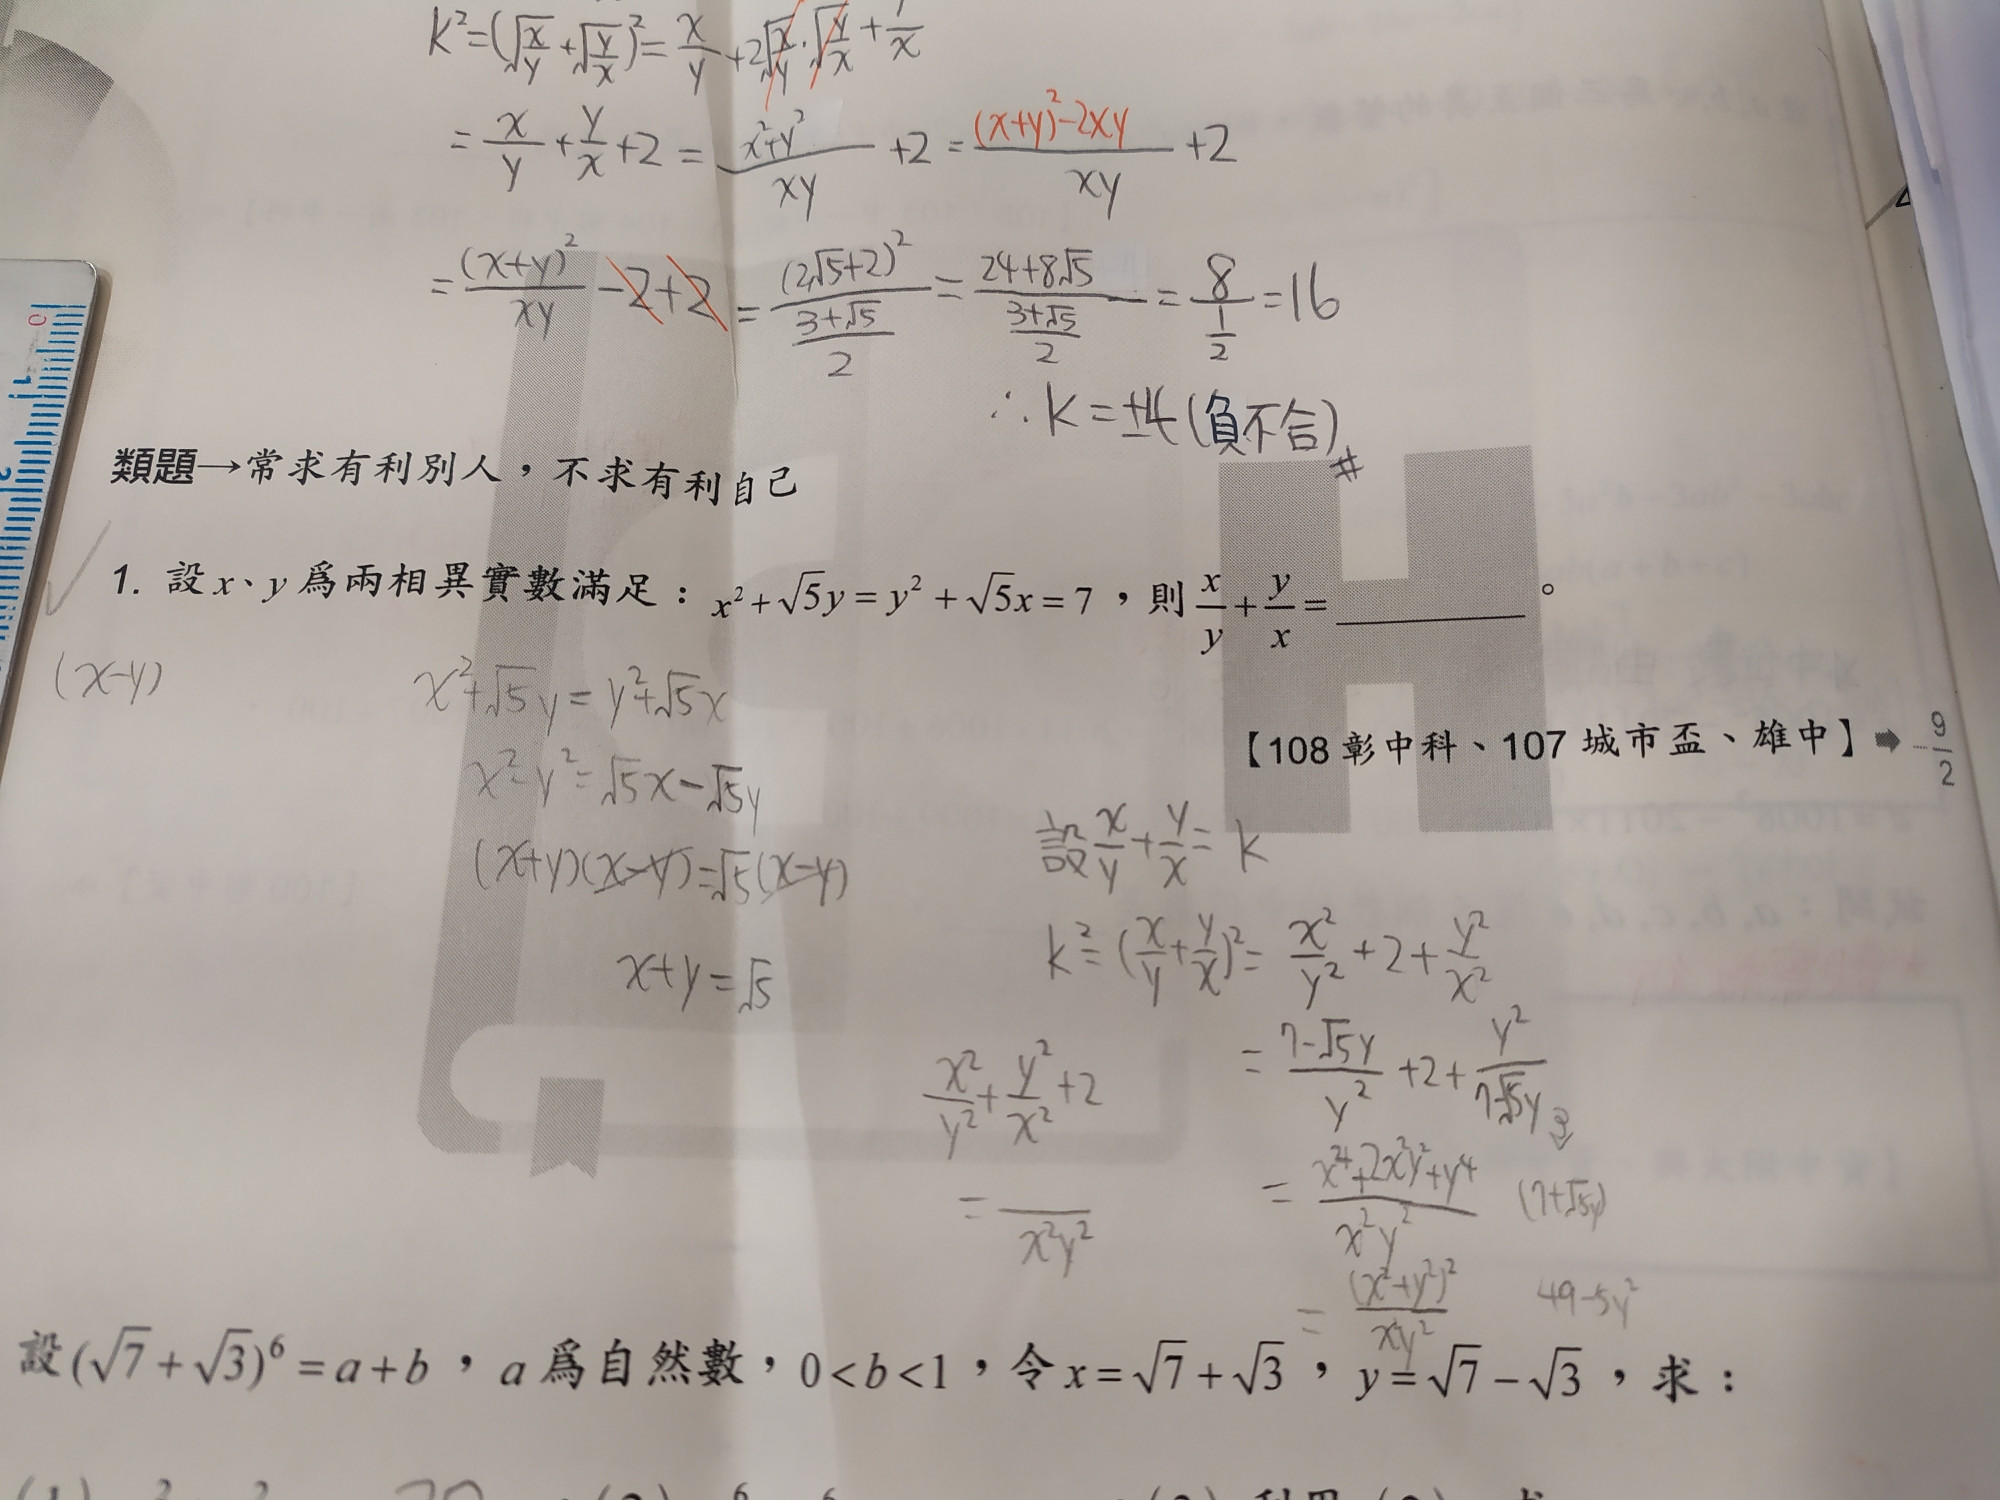 k²=(√(x/y)+√(y/x))²=x/y+2√(x/y)·√(y/x)+y/x
=x/y+y/x+2=(x²+y²)/xy+2=((x+y)²-2xy)/xy+2
=(x+y)²/xy-2+2=(2√5+2)²/((3+√5)/2)=(24+8√5)/((3+√5)/2)=8/(1/2)=16
∴k=±4(負不合)#
類題→常求有利別人,不求有利自己
1. 設x、y為兩相異實數滿足:x²+√5y=y²+√5x=7,則x/y+y/x=______。
(x-y)
x²+√5y=y²+√5x
【108彰中科、107城市盃、雄中】➡-9/2
x²-y²=√5x-√5y
(x+y)(x-y)=√5(x-y)
x+y=√5
設x/y+y/x=k
k²=(x/y+y/x)²=x²/y²+2+y²/x²
=(7-√5y)/y²+2+y²/(7-√5y)
x²/y²+y²/x²+2
= /x²y²
=(x⁴+2x²y²+y⁴)/x²y²
(7+√5y)
=(x²+y²)²/xy²
49-5y²
設(√7+√3)⁶=a+b,a為自然數,0<b<1,令x=√7+√3,y=√7-√3,求: